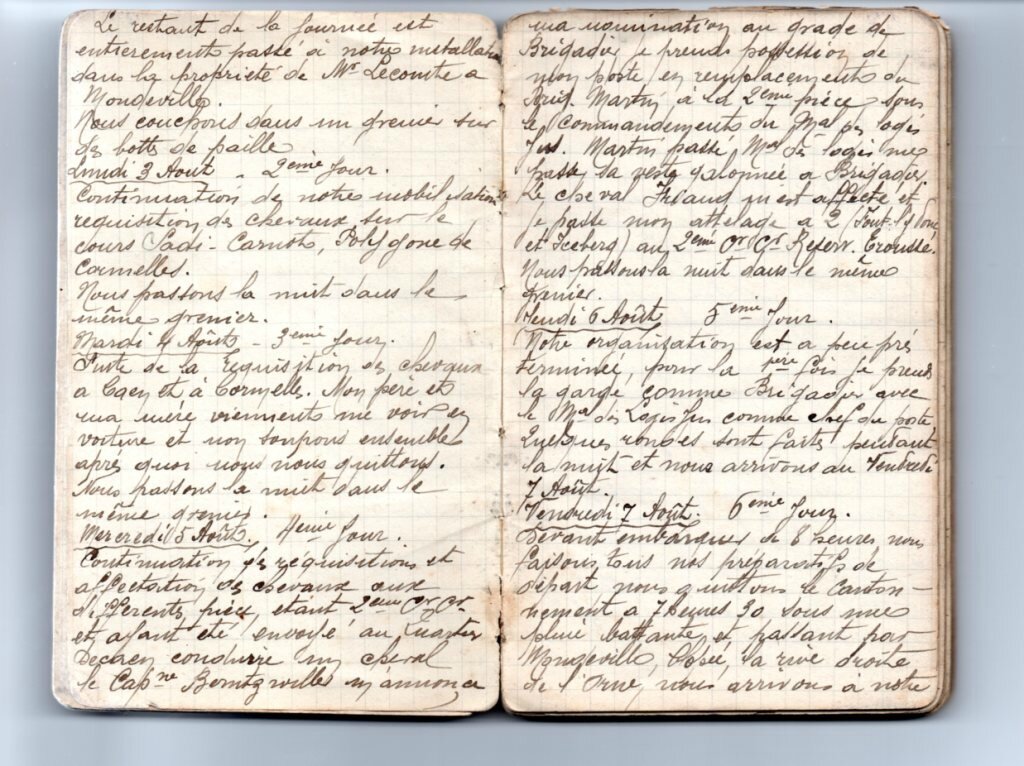 Le restant de la journée est
entierement passé à notre installation
dans la propriété de Mr Lecomte a
Mondeville.
Nous couchons dans un grenier sur
des botts de paille
Lundi 3 Août - 2eme Jour.
Continuation de notre mobilisation
requisition des chevaux sur le
cours Sadi-Carnot, Polygone de
Cormelles.
Nous passons la nuit dans le
même grenier.
Mardi 4 Août - 3eme Jour.
Suite de la requisition des chevaux
a Caen et à Cormelles. Mon père et
ma mere viennent me voir en
voiture et nous soupons ensemble
après quoi nous nous quittons.
Nous passons la nuit dans le
même grenier.
Mercredi 5 Août. 4eme Jour.
Continuation des réquisitions et
affectation des chevaux aux
differentes pièces, etant 2eme Cr Ct
et ayant été envoyé au Quartier
Decaen conduire un cheval
le Capne m'annonce
ma nomination au grade de
Brigadier je prends possession de
mon poste en remplacement du
Brig. Martin à la 2eme pièce sous
le commandement du Mal des logis
Jus. Martin passe Mal des logis me
passe sa veste galonnée a Brigadier
Le cheval m'est affecte et
je passe mon attelage a 2
et Iceberg) au 2eme Cr Ct Reserv. Trousse.
Nous passons la nuit dans le même
grenier.
Jeudi 6 Août 5eme Jour.
Notre organization est a peu près
terminée, pour la 1ere fois je prends
la garde comme Brigadier avec
le Mal des Logis Jus comme chef de poste
Quelques rondes sont faites pendant
la nuit et nous arrivons au Vendredi
7 Août.
Vendredi 7 Août. 6eme Jour.
Devant embarquer à 8 heures nous
faisons tous nos préparatifs de
départ nous quittons le canton-
nement a 7 heures 30 sous une
pluie battante et passant par
Mondeville, la rive droite
de l'Orne, nous arrivons à notre